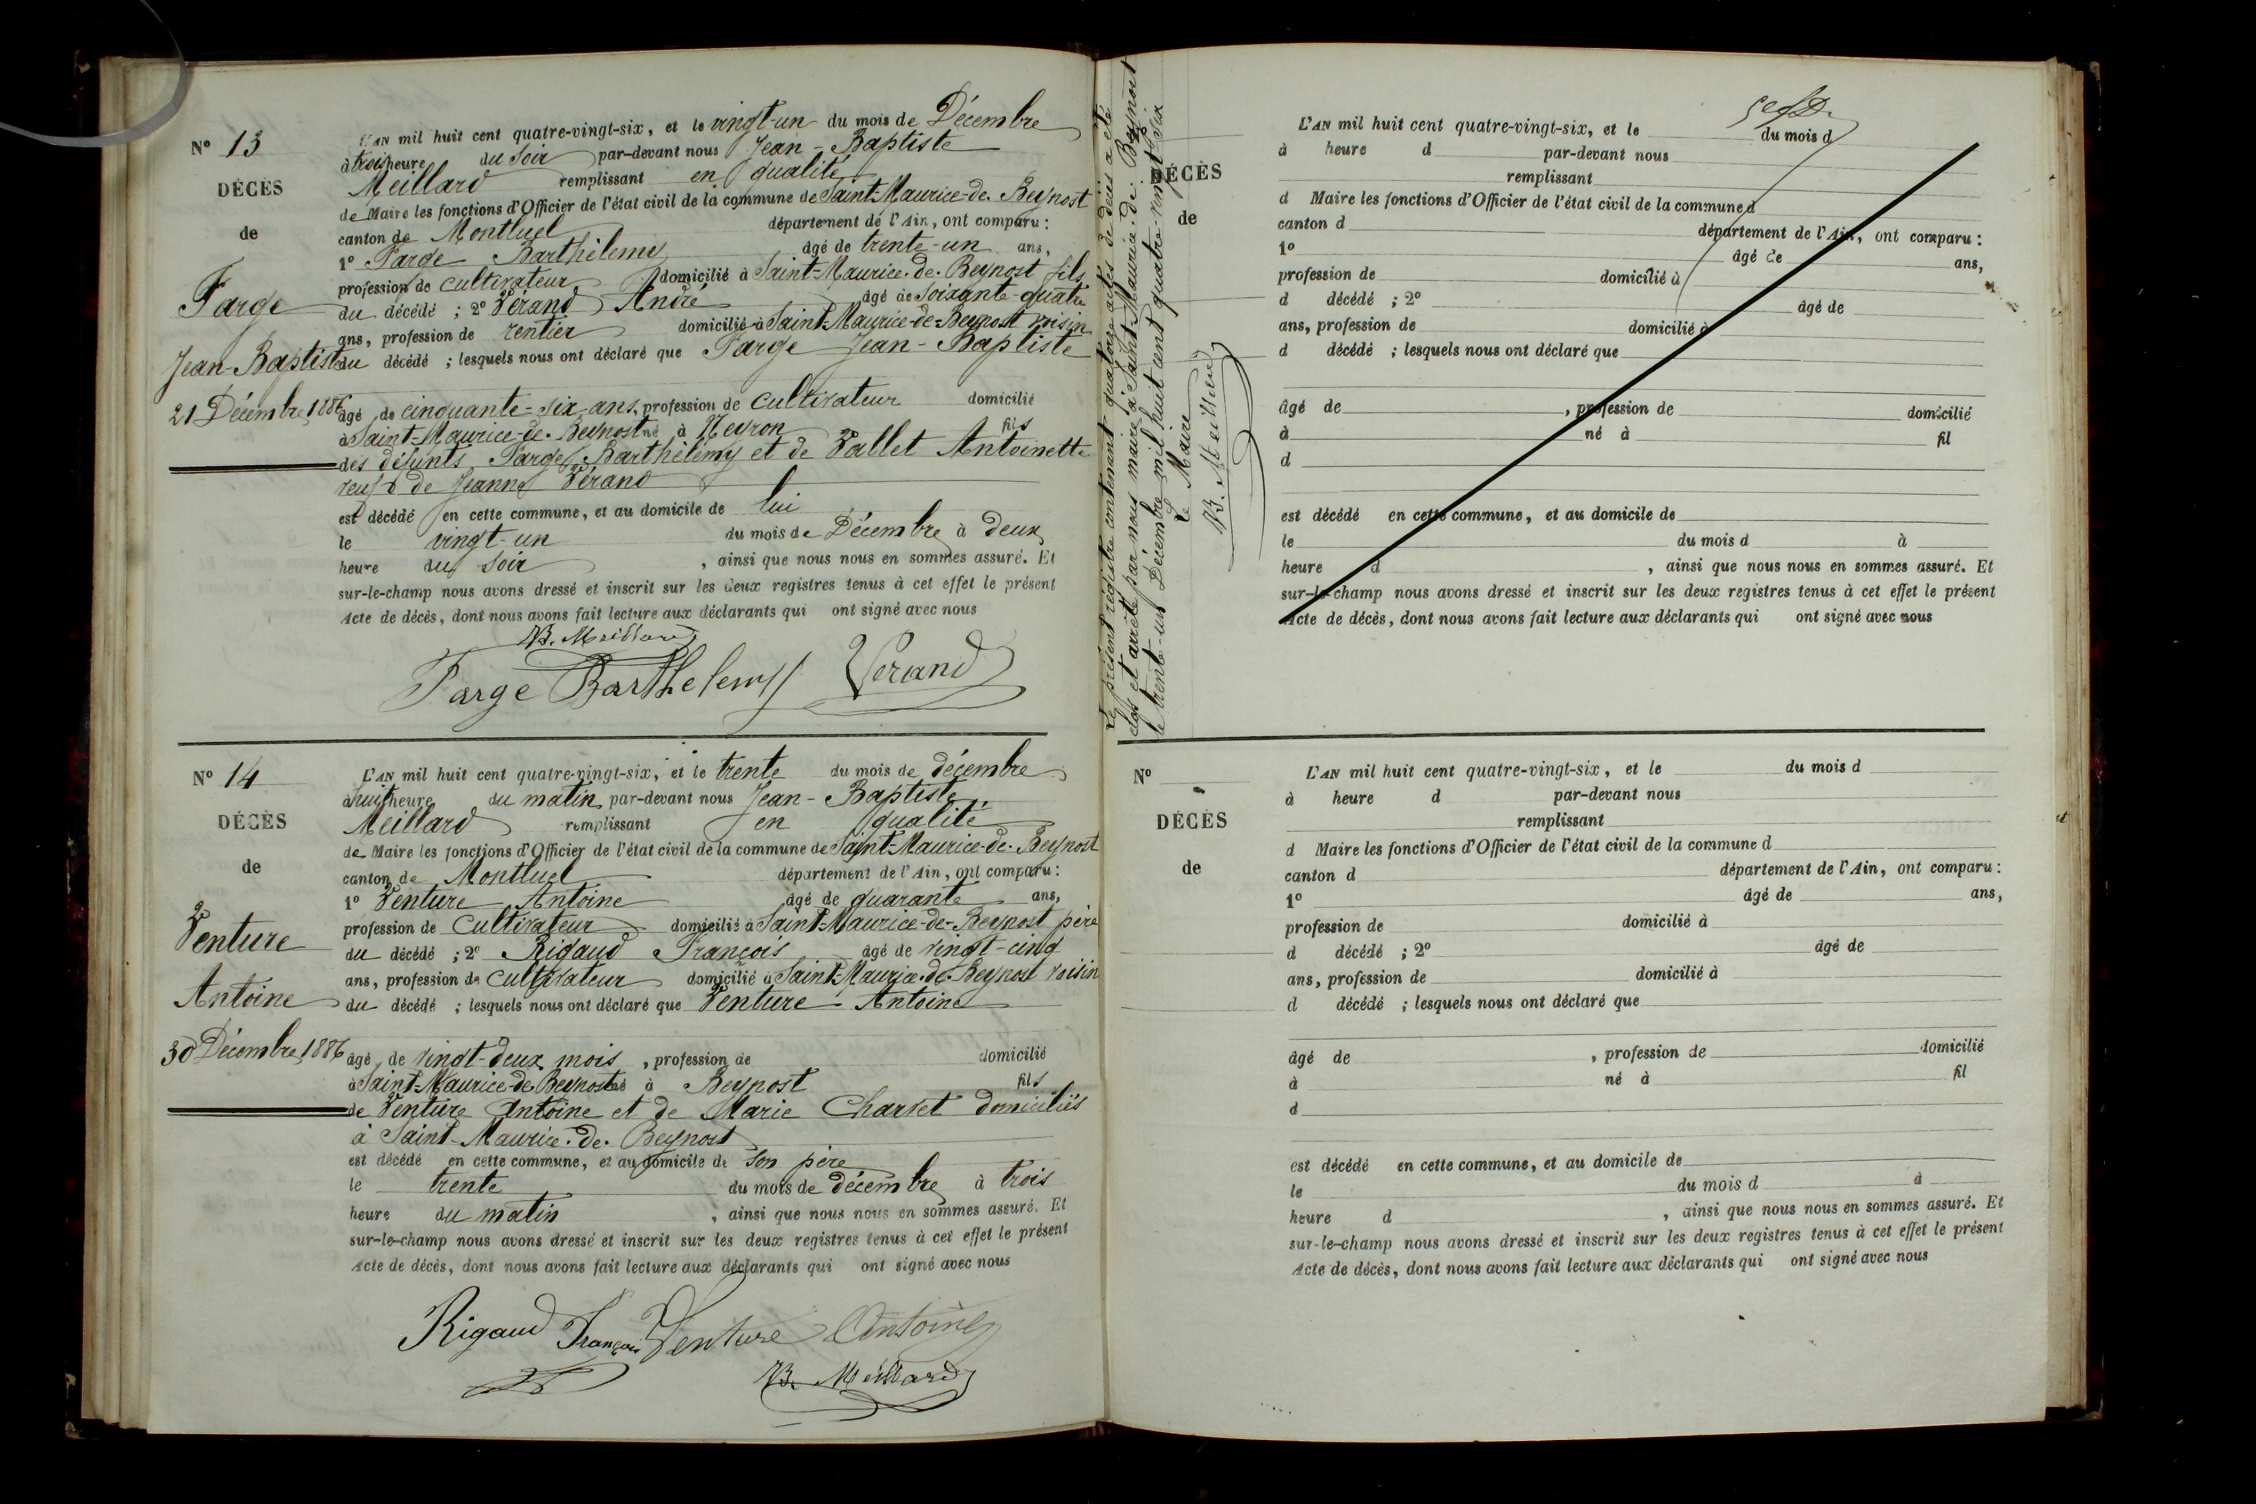 N° 13
DÉCÈS
de
Farge
Jean-Baptiste
21 Décembre 1886
L'AN mil huit cent quatre-vingt-six, et le vingt-un du mois de Décembre
à trois heure du soir par-devant nous Jean-Baptiste
Meillard remplissant en qualité
de Maire les fonctions d'Officier de l'état civil de la commune de Saint-Maurice-de-Beynost
canton de Montluel département de l'Ain, ont comparu :
1° Farge Barthélemy âgé de trente-un ans,
profession de cultivateur domicilié à Saint-Maurice-de-Beynost fils
du décédé ; 2° Vérand André âgé de soixante-quatre
ans, profession de rentier domicilié à Saint-Maurice-de-Beynost voisin
du décédé ; lesquels nous ont déclaré que Farge Jean-Baptiste
âgé de cinquante-six ans, profession de cultivateur domicilié
à Saint-Maurice-de-Beynost né à Neyron fils
des défunts Farge Barthélemy et de Vallet Antoinette
veuf de Jeanne Vérand
est décédé en cette commune, et au domicile de lui
le vingt-un du mois de Décembre à deux
heure du soir , ainsi que nous nous en sommes assuré. Et
sur-le-champ nous avons dressé et inscrit sur les deux registres tenus à cet effet le présent
Acte de décès, dont nous avons fait lecture aux déclarants qui ont signé avec nous
JB. Meillard
Farge Barthelemy Verand
N° 14
DÉCÈS
de
Venture
Antoine
30 Décembre 1886
L'AN mil huit cent quatre-vingt-six, et le trente du mois de décembre
à huit heure du matin par-devant nous Jean-Baptiste
Meillard remplissant en qualité
de Maire les fonctions d'Officier de l'état civil de la commune de Saint-Maurice-de-Beynost
canton de Montluel département de l'Ain, ont comparu :
1° Venture Antoine âgé de quarante ans,
profession de cultivateur domicilié à Saint-Maurice-de-Beynost père
du décédé ; 2° Rigaud François âgé de vingt-cinq
ans, profession de cultivateur domicilié à Saint-Maurice-de-Beynost voisin
du décédé ; lesquels nous ont déclaré que Venture Antoine
âgé de vingt-deux mois , profession de domicilié
à Saint-Maurice-de-Beynost né à Beynost fils
de Venture Antoine et de Marie Charvet domiciliés
à Saint-Maurice-de-Beynost
est décédé en cette commune, et au domicile de son père
le trente du mois de décembre à trois
heure du matin , ainsi que nous nous en sommes assuré. Et
sur-le-champ nous avons dressé et inscrit sur les deux registres tenus à cet effet le présent
Acte de décès, dont nous avons fait lecture aux déclarants qui ont signé avec nous
Rigaud François Venture Antoine
JB. Meillard
Le présent registre contenant quatorze actes de décès a été
clos et arrêté par nous maire à Saint-Maurice-de-Beynost
le trente-un Décembre mil huit cent quatre-vingt-six
Le Maire
JB. Meillard
DÉCÈS
de
L'AN mil huit cent quatre-vingt-six, et le du mois d
à heure d par-devant nous
remplissant
d Maire les fonctions d'Officier de l'état civil de la commune d
canton d département de l'Ain, ont comparu :
1° âgé de ans,
profession de domicilié à
d décédé ; 2° âgé de
ans, profession de domicilié à
d décédé ; lesquels nous ont déclaré que
âgé de , profession de domicilié
à né à fil
d
est décédé en cette commune, et au domicile de
le du mois d à
heure d , ainsi que nous nous en sommes assuré. Et
sur-le-champ nous avons dressé et inscrit sur les deux registres tenus à cet effet le présent
Acte de décès, dont nous avons fait lecture aux déclarants qui ont signé avec nous
N°
DÉCÈS
de
L'AN mil huit cent quatre-vingt-six, et le du mois d
à heure d par-devant nous
remplissant
d Maire les fonctions d'Officier de l'état civil de la commune d
canton d département de l'Ain, ont comparu :
1° âgé de ans,
profession de domicilié à
d décédé ; 2° âgé de
ans, profession de domicilié à
d décédé ; lesquels nous ont déclaré que
âgé de , profession de domicilié
à né à fil
d
est décédé en cette commune, et au domicile de
le du mois d à
heure d , ainsi que nous nous en sommes assuré. Et
sur-le-champ nous avons dressé et inscrit sur les deux registres tenus à cet effet le présent
Acte de décès, dont nous avons fait lecture aux déclarants qui ont signé avec nous